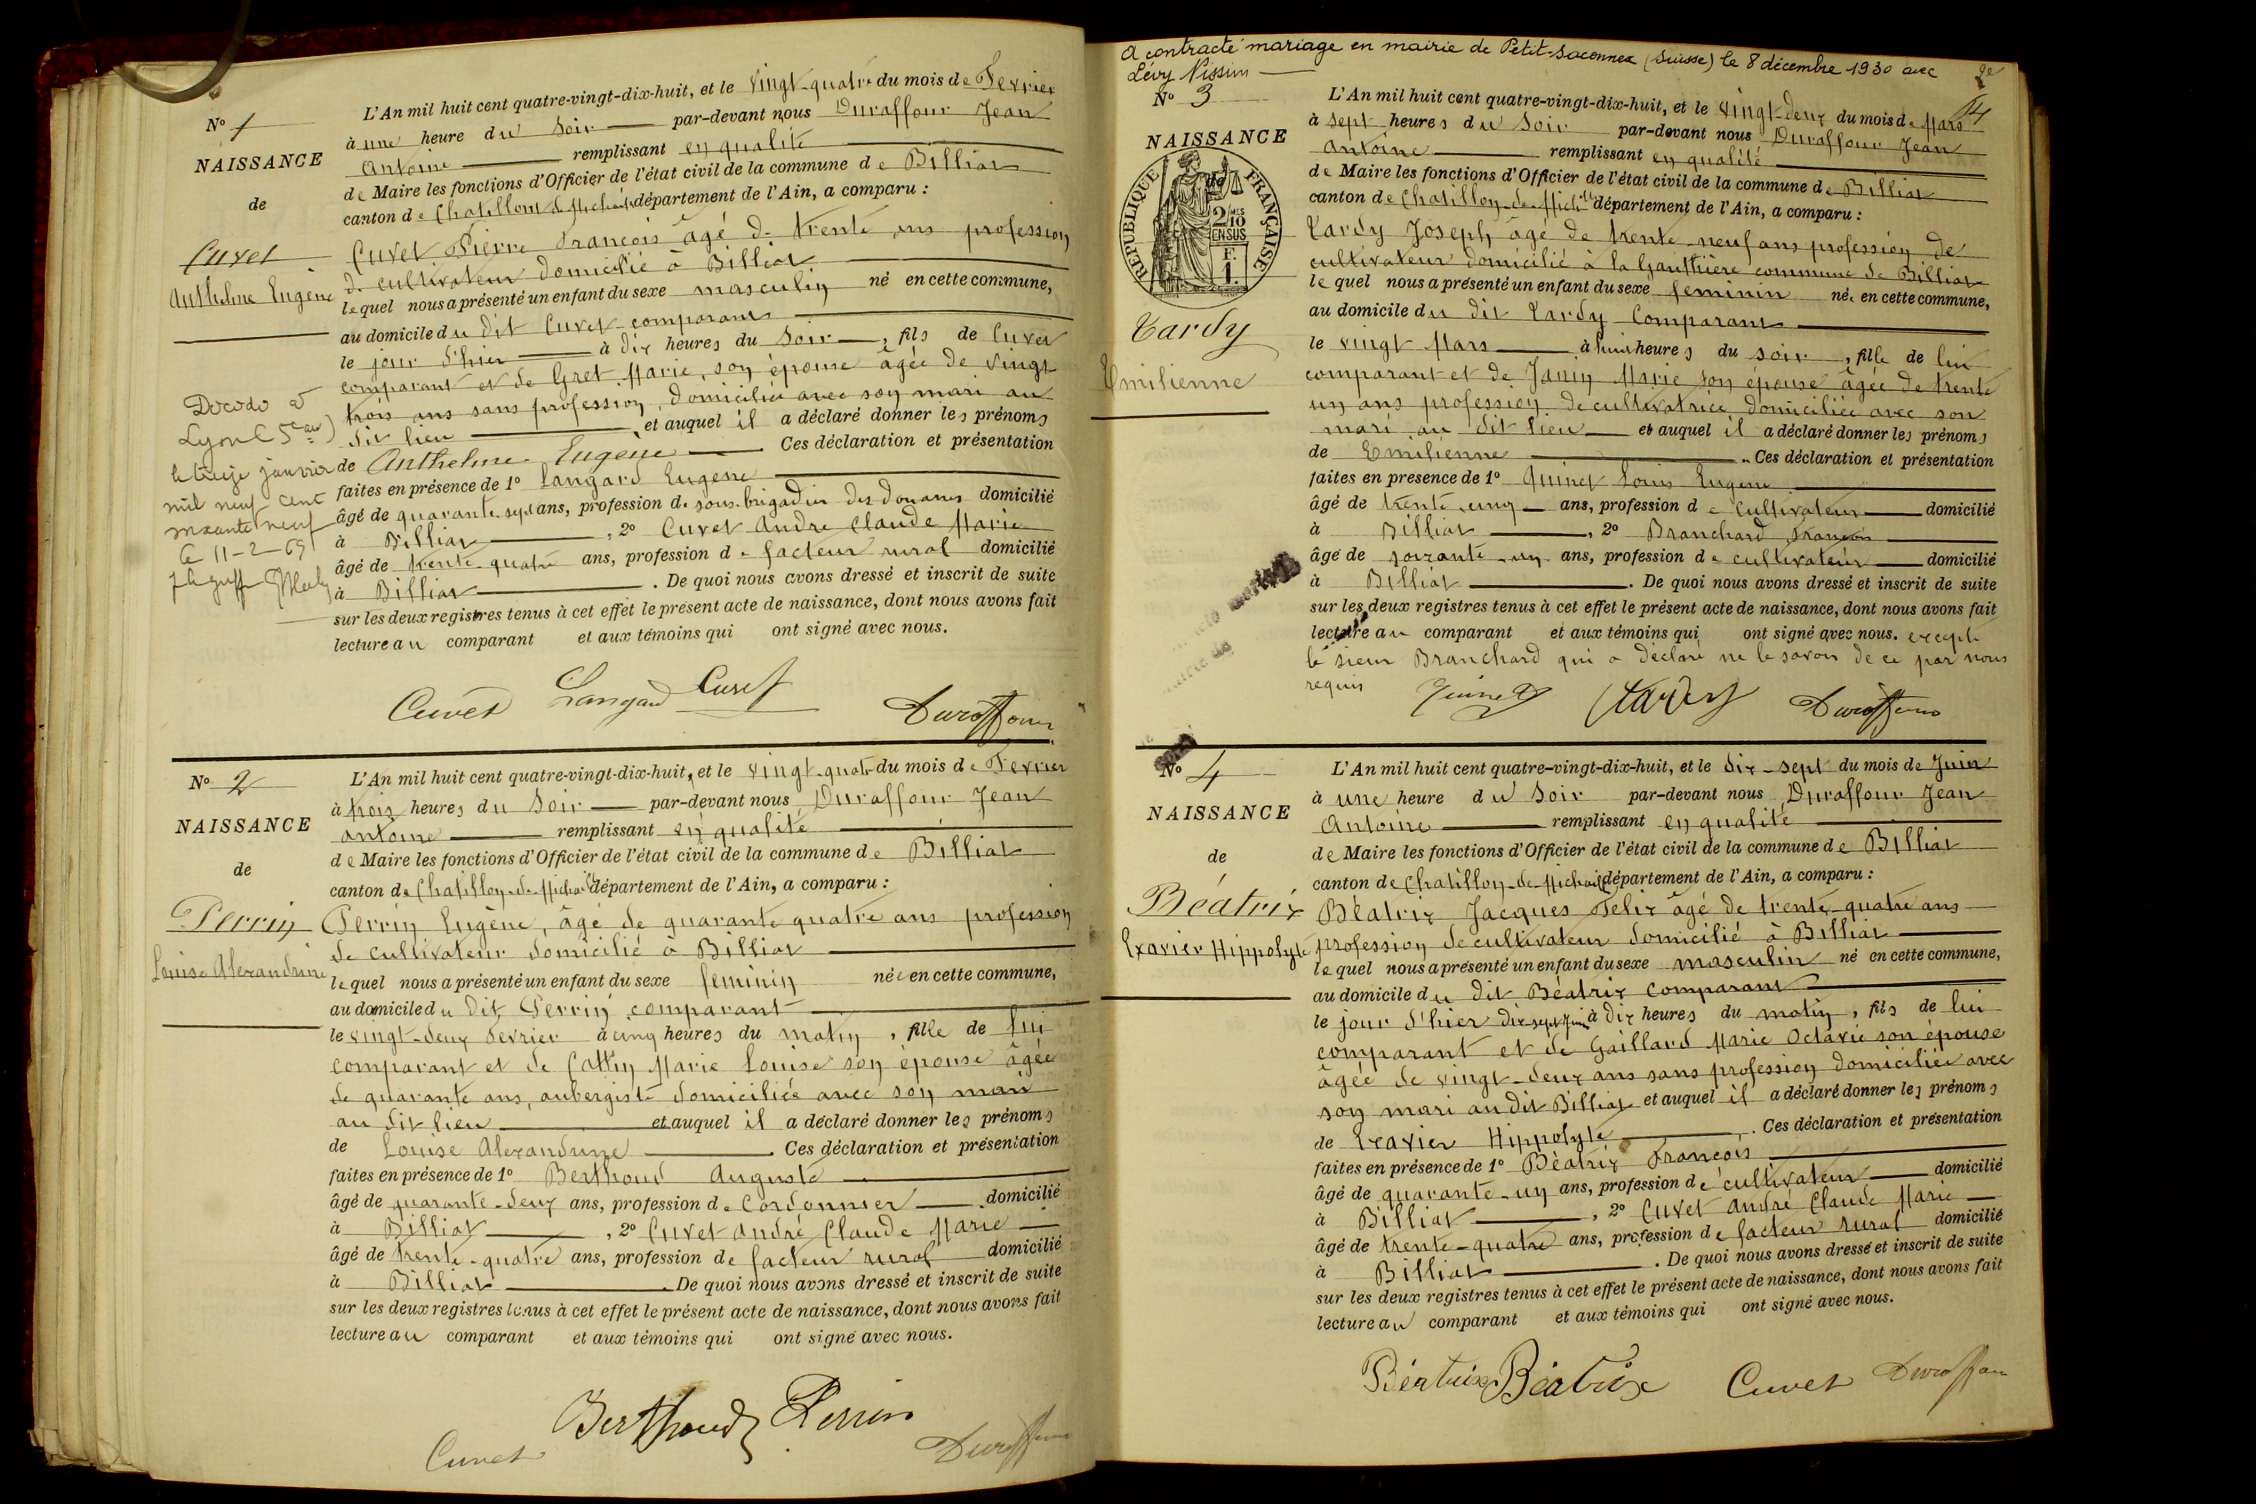 N° 1
NAISSANCE
de
Cuvet
Anthelme Eugène
Décédé à
Lyon (5e arr)
le treize janvier
mil neuf cent
soixante neuf
le 11-2-69
L'An mil huit cent quatre-vingt-dix-huit, et le vingt-quatre du mois de Fevrier
à une heure du Soir par-devant nous Duraffour Jean
Antoine remplissant en qualité
de Maire les fonctions d'Officier de l'état civil de la commune de Billiat
canton de Chatillon de Michaille département de l'Ain, a comparu :
Cuvet Pierre François âgé de trente ans profession
de cultivateur domicilié à Billiat
lequel nous a présenté un enfant du sexe masculin né en cette commune,
au domicile du dit Cuvet comparant
le jour d'hier à dix heures du Soir, fils de Cuvet
comparant et de Gret Marie, son épouse âgée de vingt
trois ans sans profession, domiciliée avec son mari au
dit lieu et auquel il a déclaré donner les prénoms
de Anthelme Eugène Ces déclaration et présentation
faites en présence de 1° Langard Eugène
âgé de quarante sept ans, profession de sous-brigadier des douanes domicilié
à Billiat, 2° Cuvet André Claude Marie
âgé de trente-quatre ans, profession de facteur rural domicilié
à Billiat. De quoi nous avons dressé et inscrit de suite
sur les deux registres tenus à cet effet le présent acte de naissance, dont nous avons fait
lecture au comparant et aux témoins qui ont signé avec nous.
Cuvet Langard Cuvet Duraffour
N° 2
NAISSANCE
de
Perrin
Louise Alexandrine
L'An mil huit cent quatre-vingt-dix-huit, et le vingt-quatre du mois de Fevrier
à trois heures du Soir par-devant nous Duraffour Jean
Antoine remplissant en qualité
de Maire les fonctions d'Officier de l'état civil de la commune de Billiat
canton de Chatillon-de-Michaille département de l'Ain, a comparu :
Perrin Eugène, âgé de quarante quatre ans profession
de cultivateur domicilié à Billiat
lequel nous a présenté un enfant du sexe feminin née en cette commune,
au domicile du dit Perrin comparant
le vingt-deux Fevrier à cinq heures du matin, fille de lui
comparant et de Cattin Marie Louise son épouse âgée
de quarante ans, aubergiste domiciliée avec son mari
au dit lieu et auquel il a déclaré donner les prénoms
de Louise Alexandrine Ces déclaration et présentation
faites en présence de 1° Berthoud Auguste
âgé de quarante-deux ans, profession de Cordonnier domicilié
à Billiat, 2° Cuvet André Claude Marie
âgé de trente-quatre ans, profession de facteur rural domicilié
à Billiat. De quoi nous avons dressé et inscrit de suite
sur les deux registres tenus à cet effet le présent acte de naissance, dont nous avons fait
lecture au comparant et aux témoins qui ont signé avec nous.
Berthoud Perrin
Cuvet Duraffour
A contracté mariage en mairie de Petit-Saconnex (Suisse) le 8 décembre 1930 avec
Lévy Nissim
14
N° 3
NAISSANCE
de
RÉPUBLIQUE FRANÇAISE
2/10 MES
EN SUS
F.
1.
Tardy
Emilienne
L'An mil huit cent quatre-vingt-dix-huit, et le vingt-deux du mois de Mars
à sept heures du Soir par-devant nous Duraffour Jean
Antoine remplissant en qualité
de Maire les fonctions d'Officier de l'état civil de la commune de Billiat
canton de Chatillon-de-Michaille département de l'Ain, a comparu :
Tardy Joseph âgé de trente-neuf ans profession de
cultivateur domicilié à la Gauthière commune de Billiat
lequel nous a présenté un enfant du sexe feminin née en cette commune,
au domicile du dit Tardy Comparant
le vingt Mars à huit heures du soir, fille de lui
comparant et de Janin Marie son épouse âgée de trente
un ans profession de cultivatrice domiciliée avec son
mari au dit lieu et auquel il a déclaré donner les prénoms
de Emilienne. Ces déclaration et présentation
faites en présence de 1° Quinet Louis Eugène
âgé de trente cinq ans, profession de cultivateur domicilié
à Billiat, 2° Branchard François
âgé de soixante-un ans, profession de cultivateur domicilié
à Billiat. De quoi nous avons dressé et inscrit de suite
sur les deux registres tenus à cet effet le présent acte de naissance, dont nous avons fait
lecture au comparant et aux témoins qui ont signé avec nous. excepté
le sieur Branchard qui a déclaré ne le savoir de ce par nous
requis
Quinet Tardy Duraffour
N° 4
NAISSANCE
de
Béatrix
Exavier Hippolyte
L'An mil huit cent quatre-vingt-dix-huit, et le dix-sept du mois de Juin
à une heure du Soir par-devant nous Duraffour Jean
Antoine remplissant en qualité
de Maire les fonctions d'Officier de l'état civil de la commune de Billiat
canton de Chatillon-de-Michaille département de l'Ain, a comparu :
Béatrix Jacques Felix âgé de trente-quatre ans
profession de cultivateur domicilié à Billiat
lequel nous a présenté un enfant du sexe masculin né en cette commune,
au domicile du dit Béatrix comparant
le jour d'hier dix sept Juin à dix heures du matin, fils de lui
comparant et de Gaillard Marie Octavie son épouse
âgée de vingt-deux ans sans profession domiciliée avec
son mari au dit Billiat et auquel il a déclaré donner les prénoms
de Exavier Hippolyte. Ces déclaration et présentation
faites en présence de 1° Béatrix François
âgé de quarante-un ans, profession de cultivateur domicilié
à Billiat, 2° Cuvet André Claude Marie
âgé de trente-quatre ans, profession de facteur rural domicilié
à Billiat. De quoi nous avons dressé et inscrit de suite
sur les deux registres tenus à cet effet le présent acte de naissance, dont nous avons fait
lecture au comparant et aux témoins qui ont signé avec nous.
Béatrix Béatrix Cuvet Duraffour